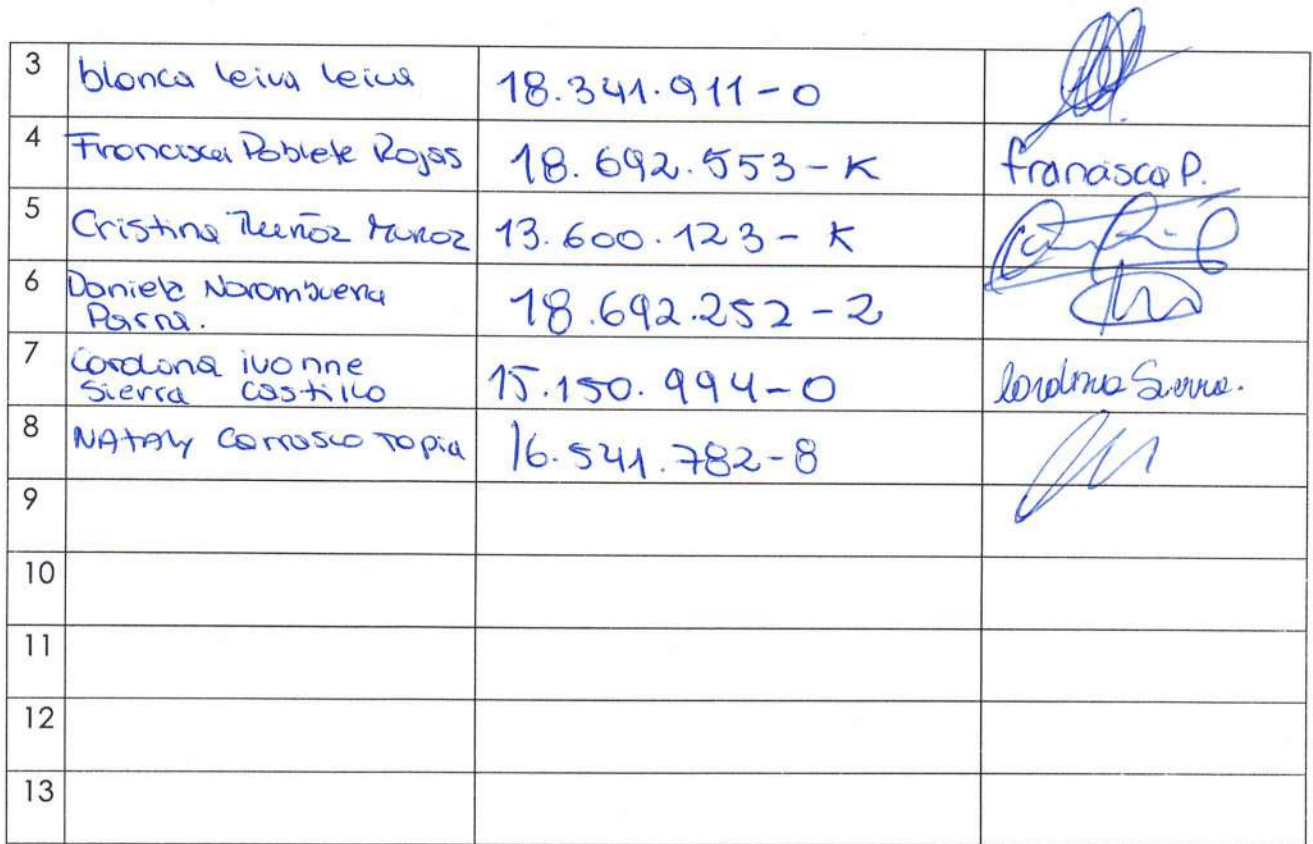 3 blanca leiva leiva 18.341.911-0
4 Francisca Poblete Rojas 18.692.553-K francisca P.
5 Cristina Muñoz Muñoz 13.600.123-K
6 Daniela Norambuena 18.692.252-2
Parra.
7 Cardona ivonne 15.150.994-0 Sierra.
Sierra Castillo
8 NATALY Carrasco Tapia 16.541.782-8
9
10
11
12
13